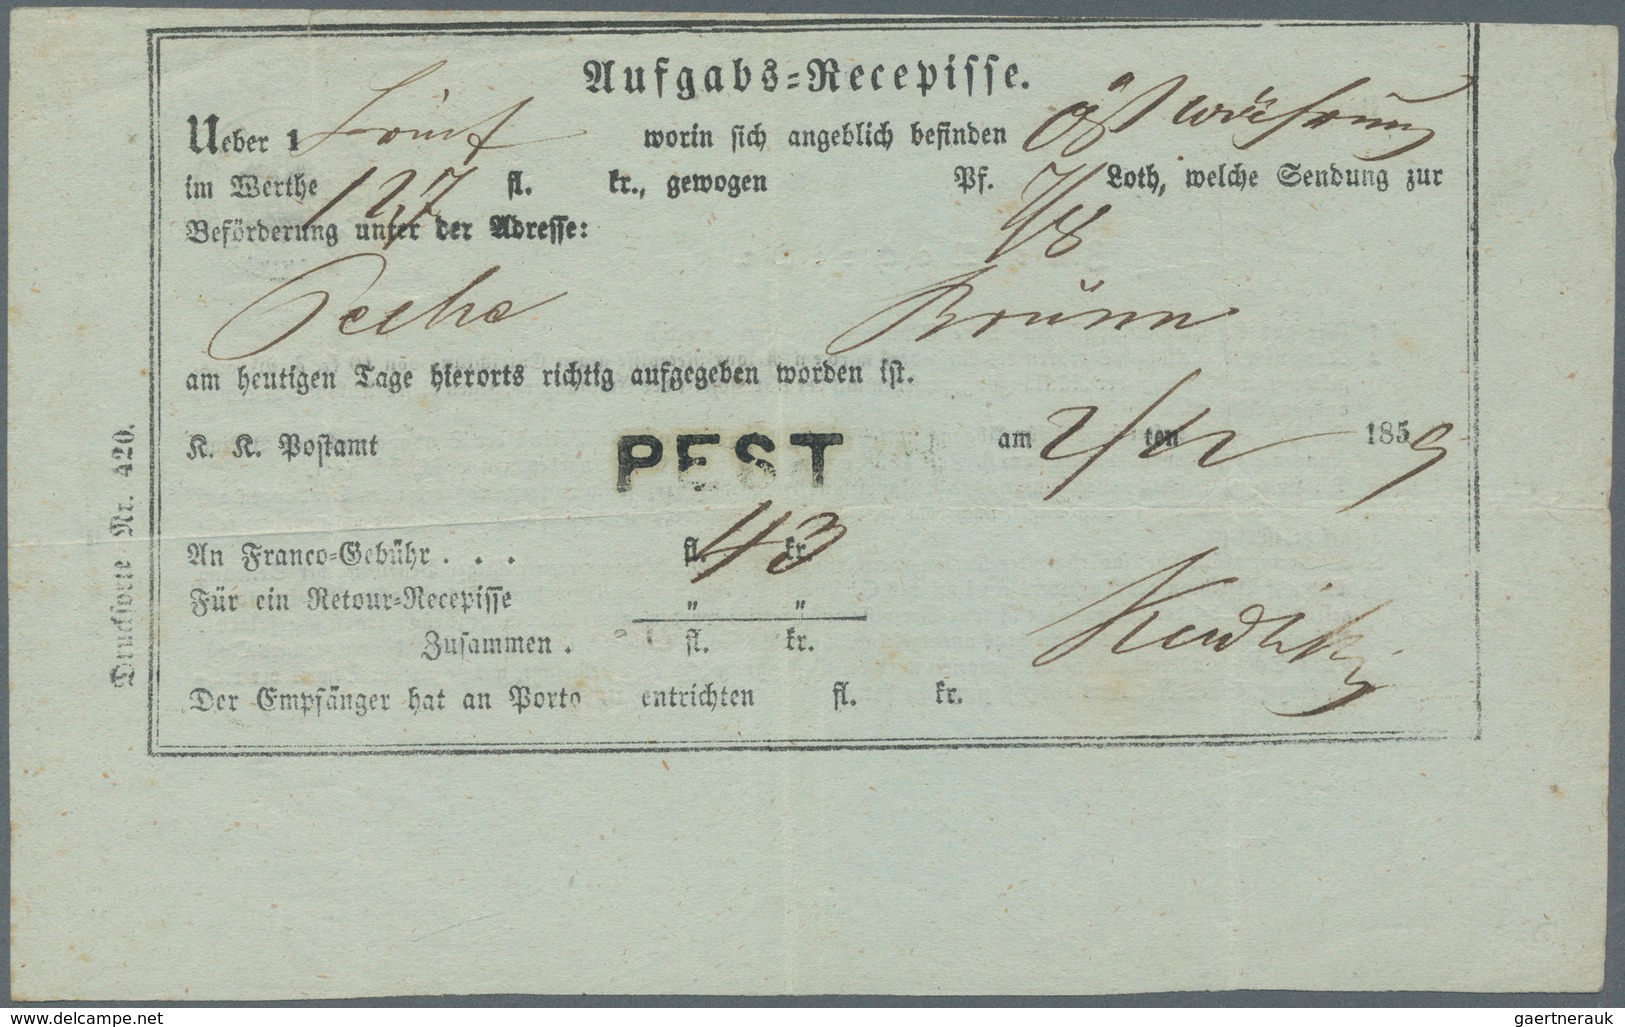 Aufgabs=Recepisse.
Ueber 1 worin sich angeblich befinden öst währung
im Werthe 127 fl. kr., gewogen Pf. 7/8 Loth, welche Sendung zur
Beförderung unter der Adresse:
Brünn
am heutigen Tage hierorts richtig aufgegeben worden ist.
K. K. Postamt PEST am 2/12 ten 1859
An Franco=Gebühr . . . fl. 43 kr.
Für ein Retour=Recepisse " "
Zusammen . fl. kr.
Der Empfänger hat an Porto entrichten fl. kr.
Drucksorte Nr. 420.
www.delcampe.net
gaertnerauk